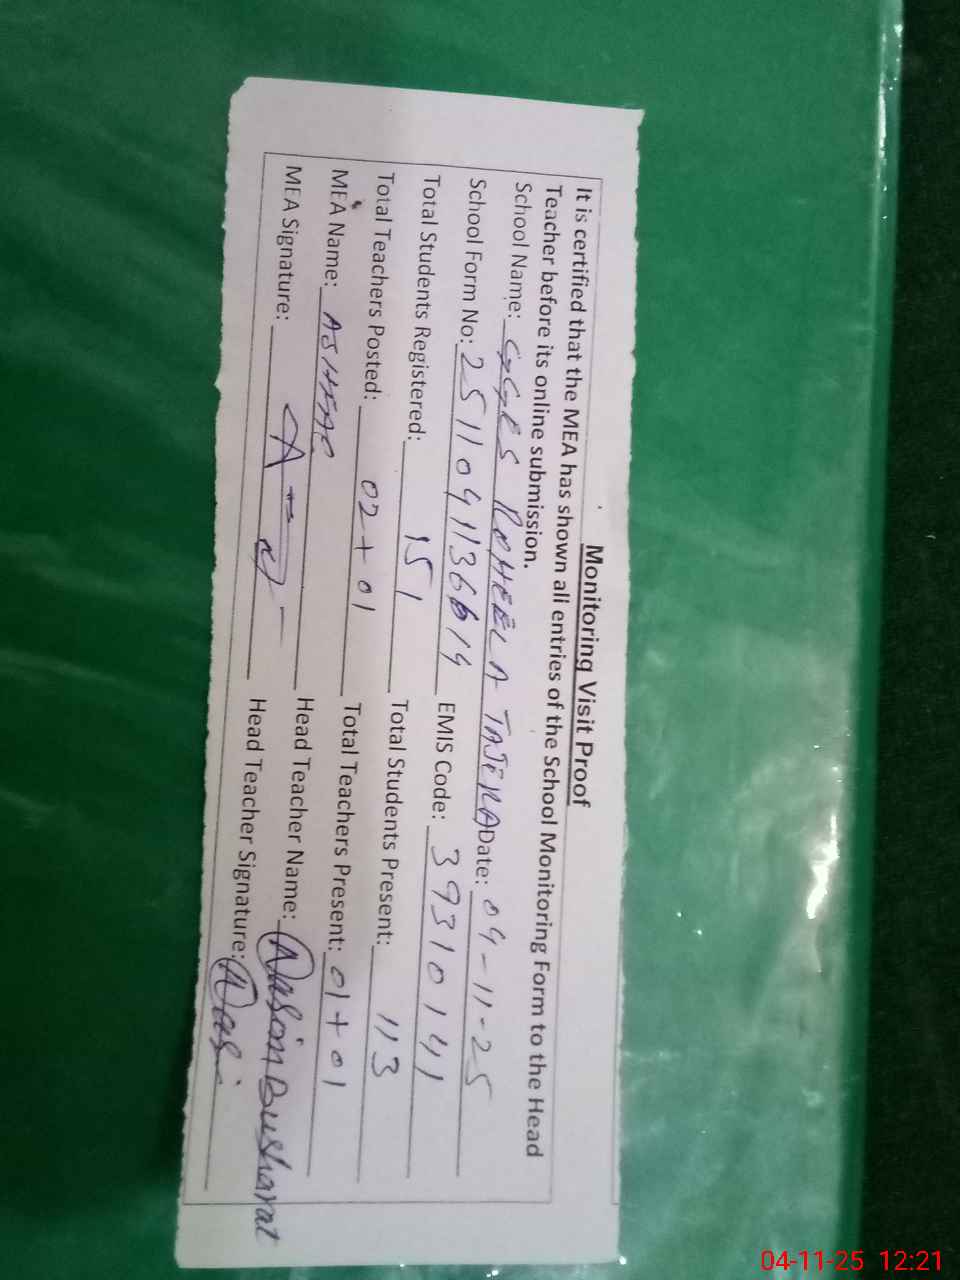 Monitoring Visit Proof
It is certified that the MEA has shown all entries of the School Monitoring Form to the Head
Teacher before its online submission.
School Name: GGES ROHEELA TAJEKA Date: 04-11-25
School Form No: 2511041136614 EMIS Code: 39310141
Total Students Registered: 151 Total Students Present: 113
Total Teachers Posted: 02+01 Total Teachers Present: 01+01
MEA Name: Head Teacher Name: Busharat
MEA Signature: Head Teacher Signature:
04-11-25 12:21